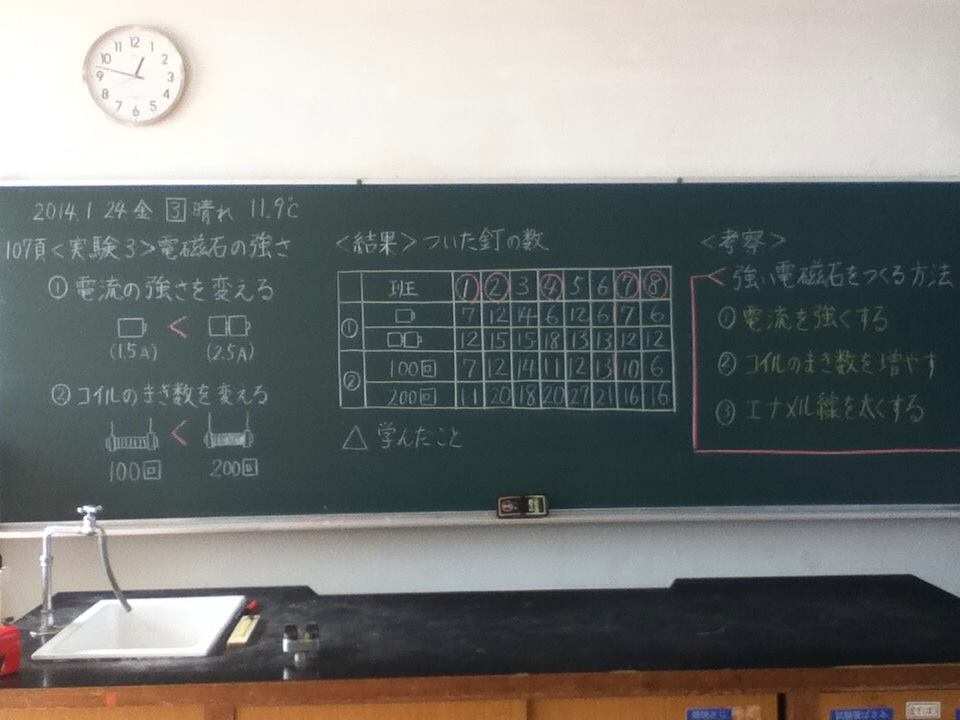 12 1 2 3 4 5 6 7 8 9 10 11
2014.1 24 金 3 晴れ 11.9℃
107頁<実験3>電磁石の強さ
① 電流の強さを変える
<
(1.5A) (2.5A)
② コイルのまき数を変える
<
100回 200回
<結果>ついた釘の数
班 ① ② 3 ④ 5 6 ⑦ ⑧
① 7 12 14 6 12 6 7 6
12 15 15 18 13 13 12 12
② 100回 7 12 14 11 12 13 10 6
200回 11 20 18 20 27 21 16 16
△ 学んだこと
<考察>
強い電磁石をつくる方法
① 電流を強くする
② コイルのまき数を増やす
③ エナメル線を太くする